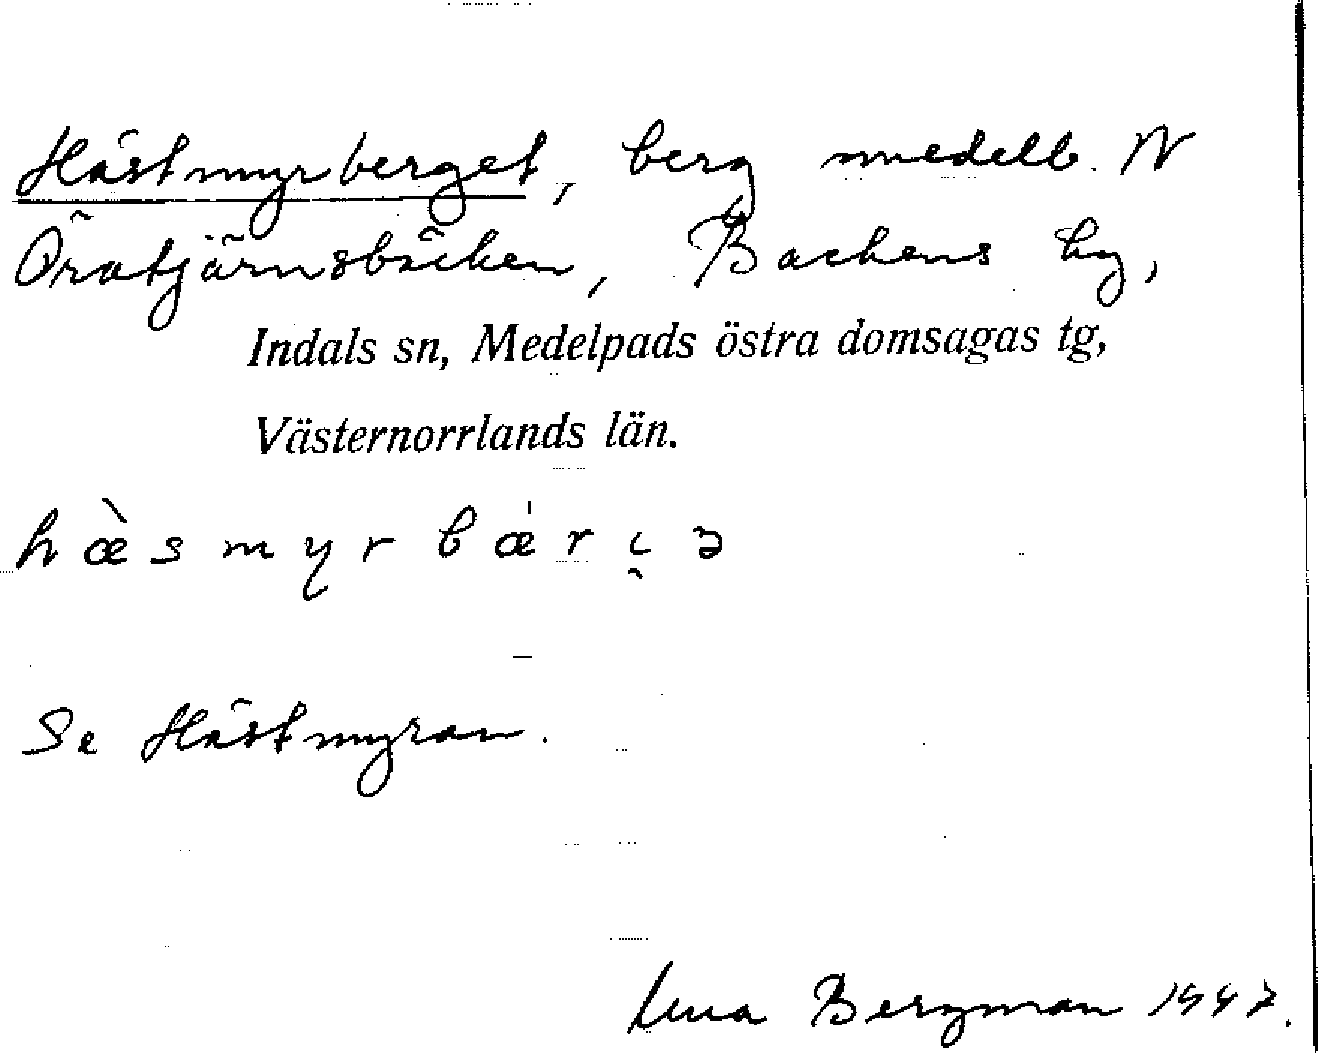 Hästmyrberget, berg medelb. N
Öratjärnsbäcken, Backens by,
Indals sn, Medelpads östra domsagas tg,
Västernorrlands län.
hæ̀smyrbǽri̯ə
Se Hästmyran.
Bergman 1947.